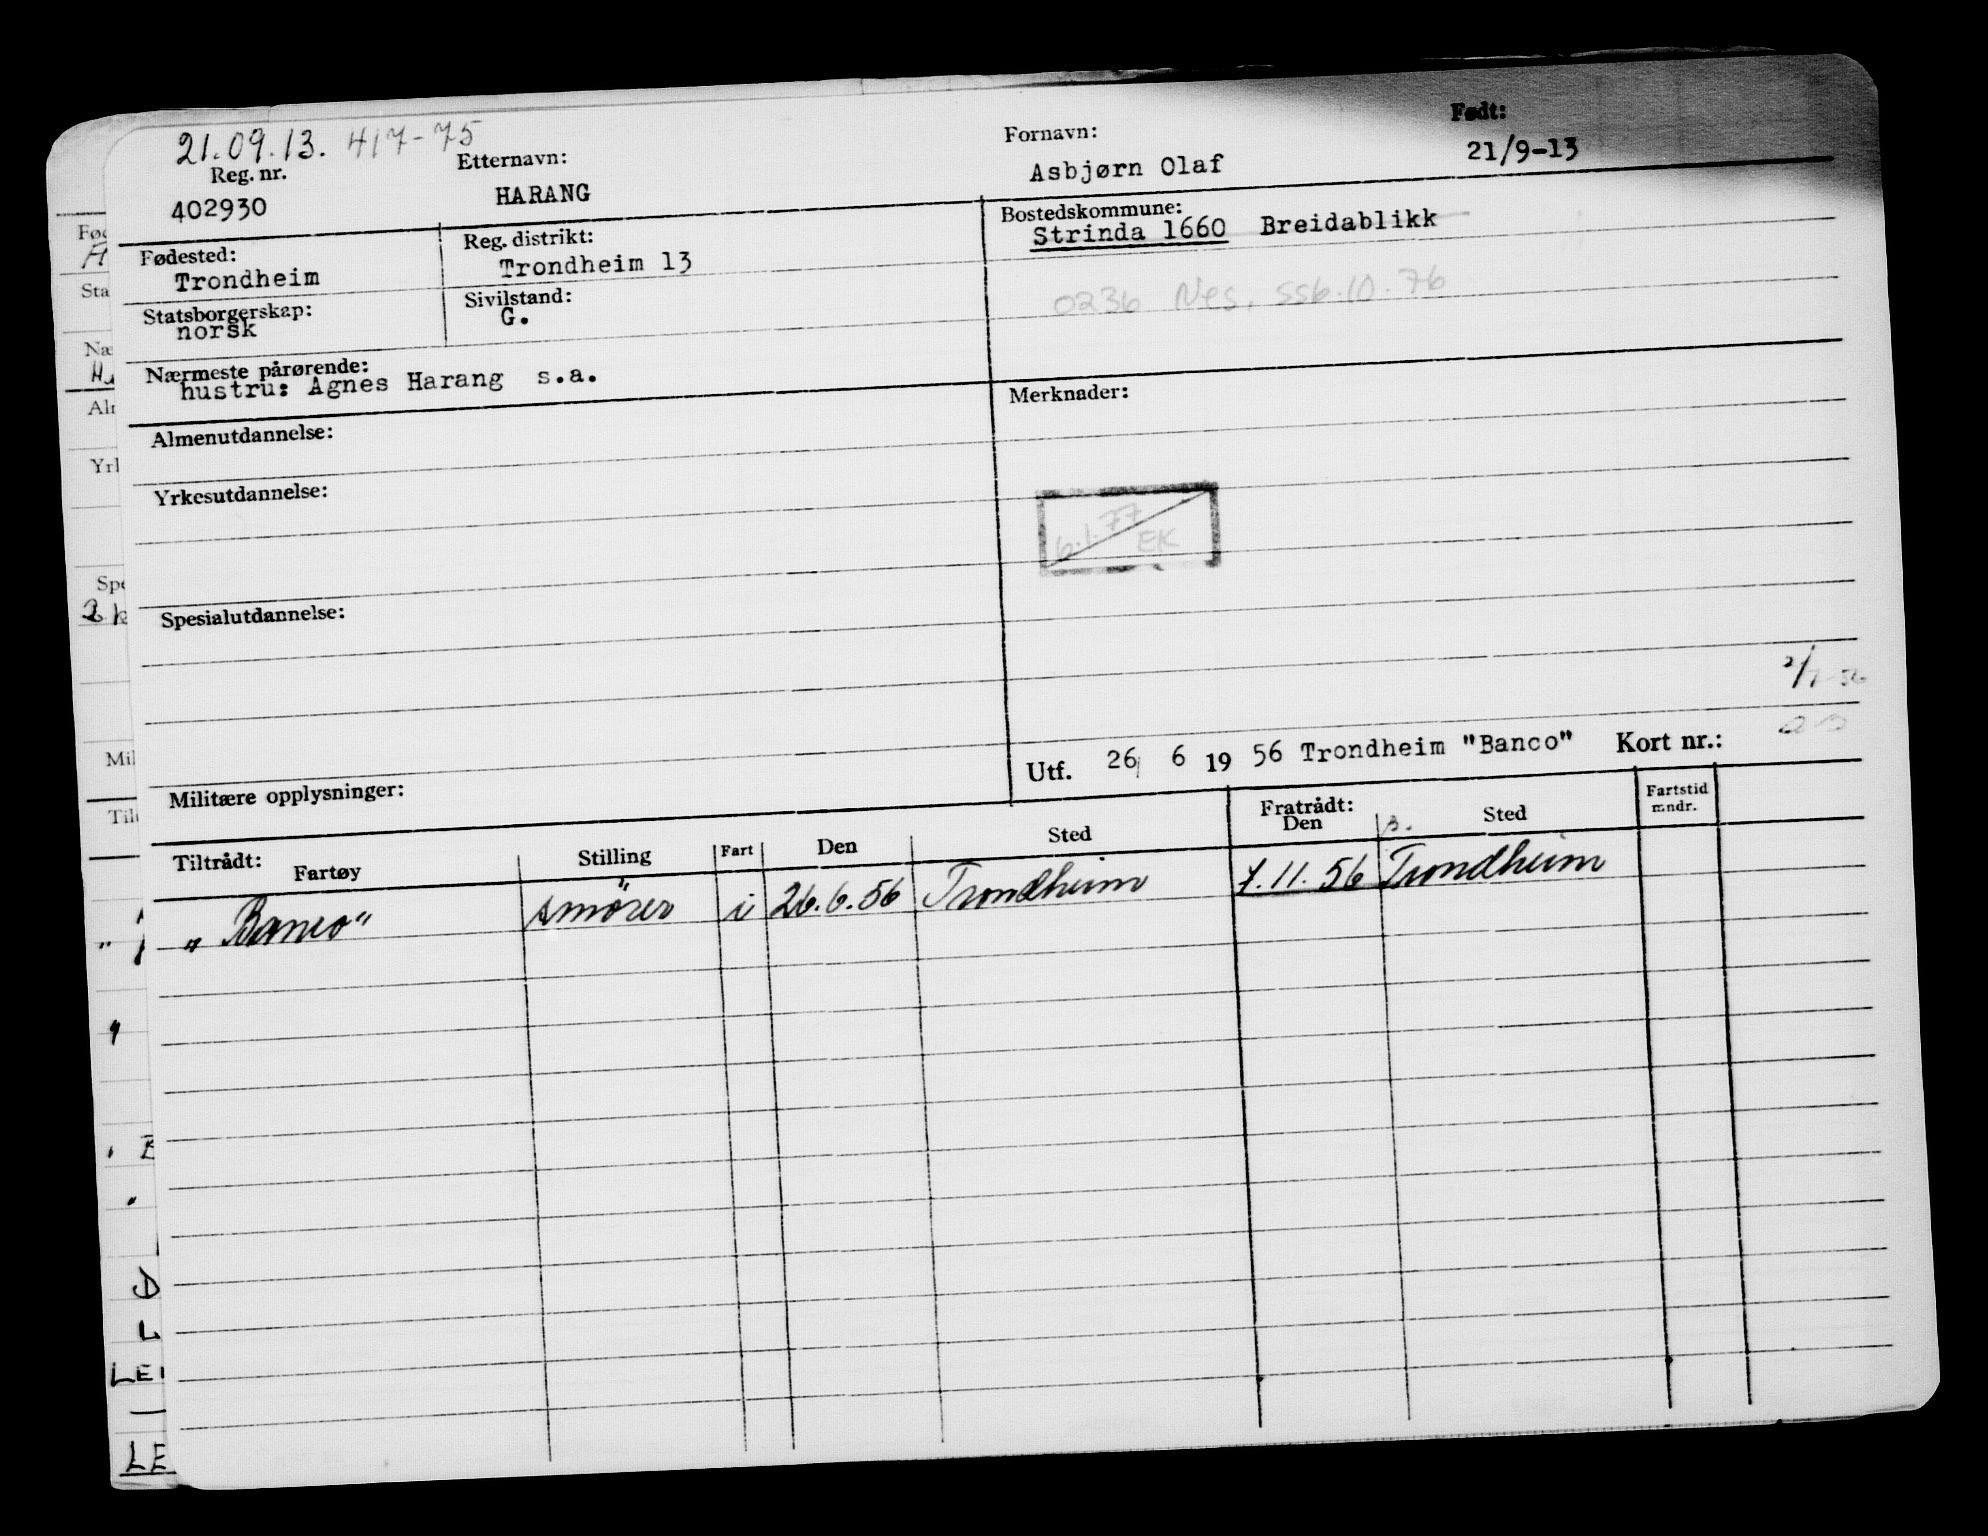 21.09.13. 417-75
Reg. nr. Etternavn: Fornavn: Født:
402930 HARANG Asbjørn Olaf 21/9-13
Fødested: Reg. distrikt: Bostedskommune:
Trondheim Trondheim 13 Strinda 1660 Breidablikk
Statsborgerskap: Sivilstand:
norsk G.
0236 Nes. ss6.10.76
Nærmeste pårørende:
hustru: Agnes Harang s.a.
Almenutdannelse: Merknader:
Yrkesutdannelse:
6.1.77
EK
Spesialutdannelse:
Militære opplysninger:
Utf. 26 6 19 56 Trondheim "Banco" Kort nr.:
Tiltrådt: Fartøy Stilling Fart Den Sted Fratrådt: Den Sted Fartstid mndr.
"Banco" smører i 26.6.56 Trondheim 7.11.56 Trondheim
Fød
Sta
Næ
Aln
Yrk
Spe
Mil
Tilt
D
L
LE
LE